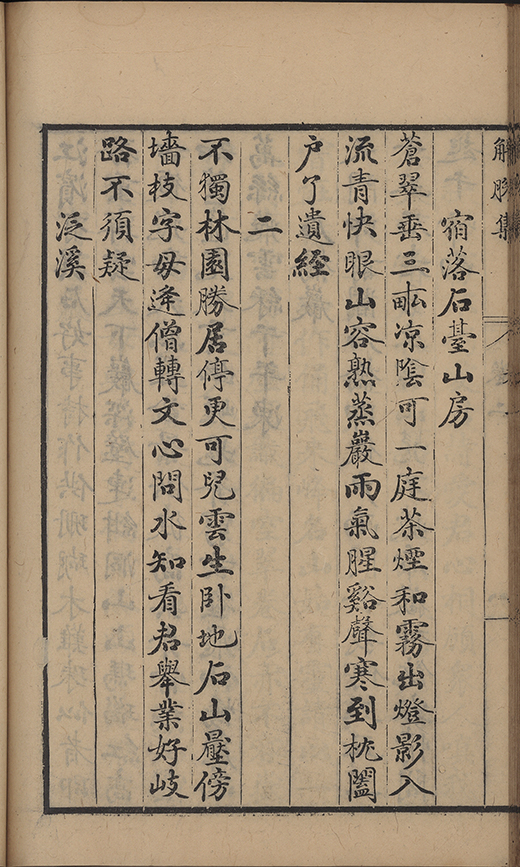 解脫集
宿落石臺山房
蒼翠垂三畝凉陰可一庭茶煙和霧出燈影入
流青快眼山容熟蒸巖雨氣腥谿聲寒到枕闔
户了遺經
二
不獨林園勝居停更可兒雲生卧地石山壓傍
墻枝字母逢僧轉文心問水知看君舉業好岐
路不須疑
泛溪